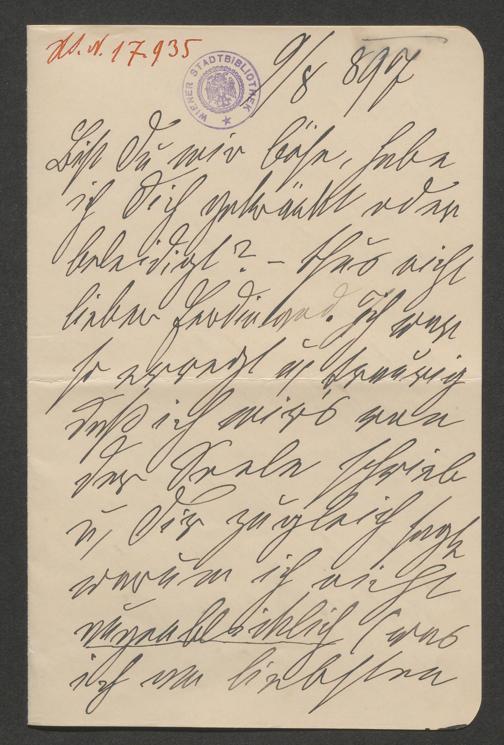 H.I.N. 17.935
WIENER STADTBIBLIOTHEK
9/8 897
Bist Du mir böse, habe
ich Dich gekränkt oder
beleidigt? – thu's nicht
lieber Ferdinand. Ich war
so erregt u. traurig
daß ich mir's von
der Seele schrieb
u. Dir zugleich sagte
warum ich nicht
augenblicklich (was
ich am liebsten